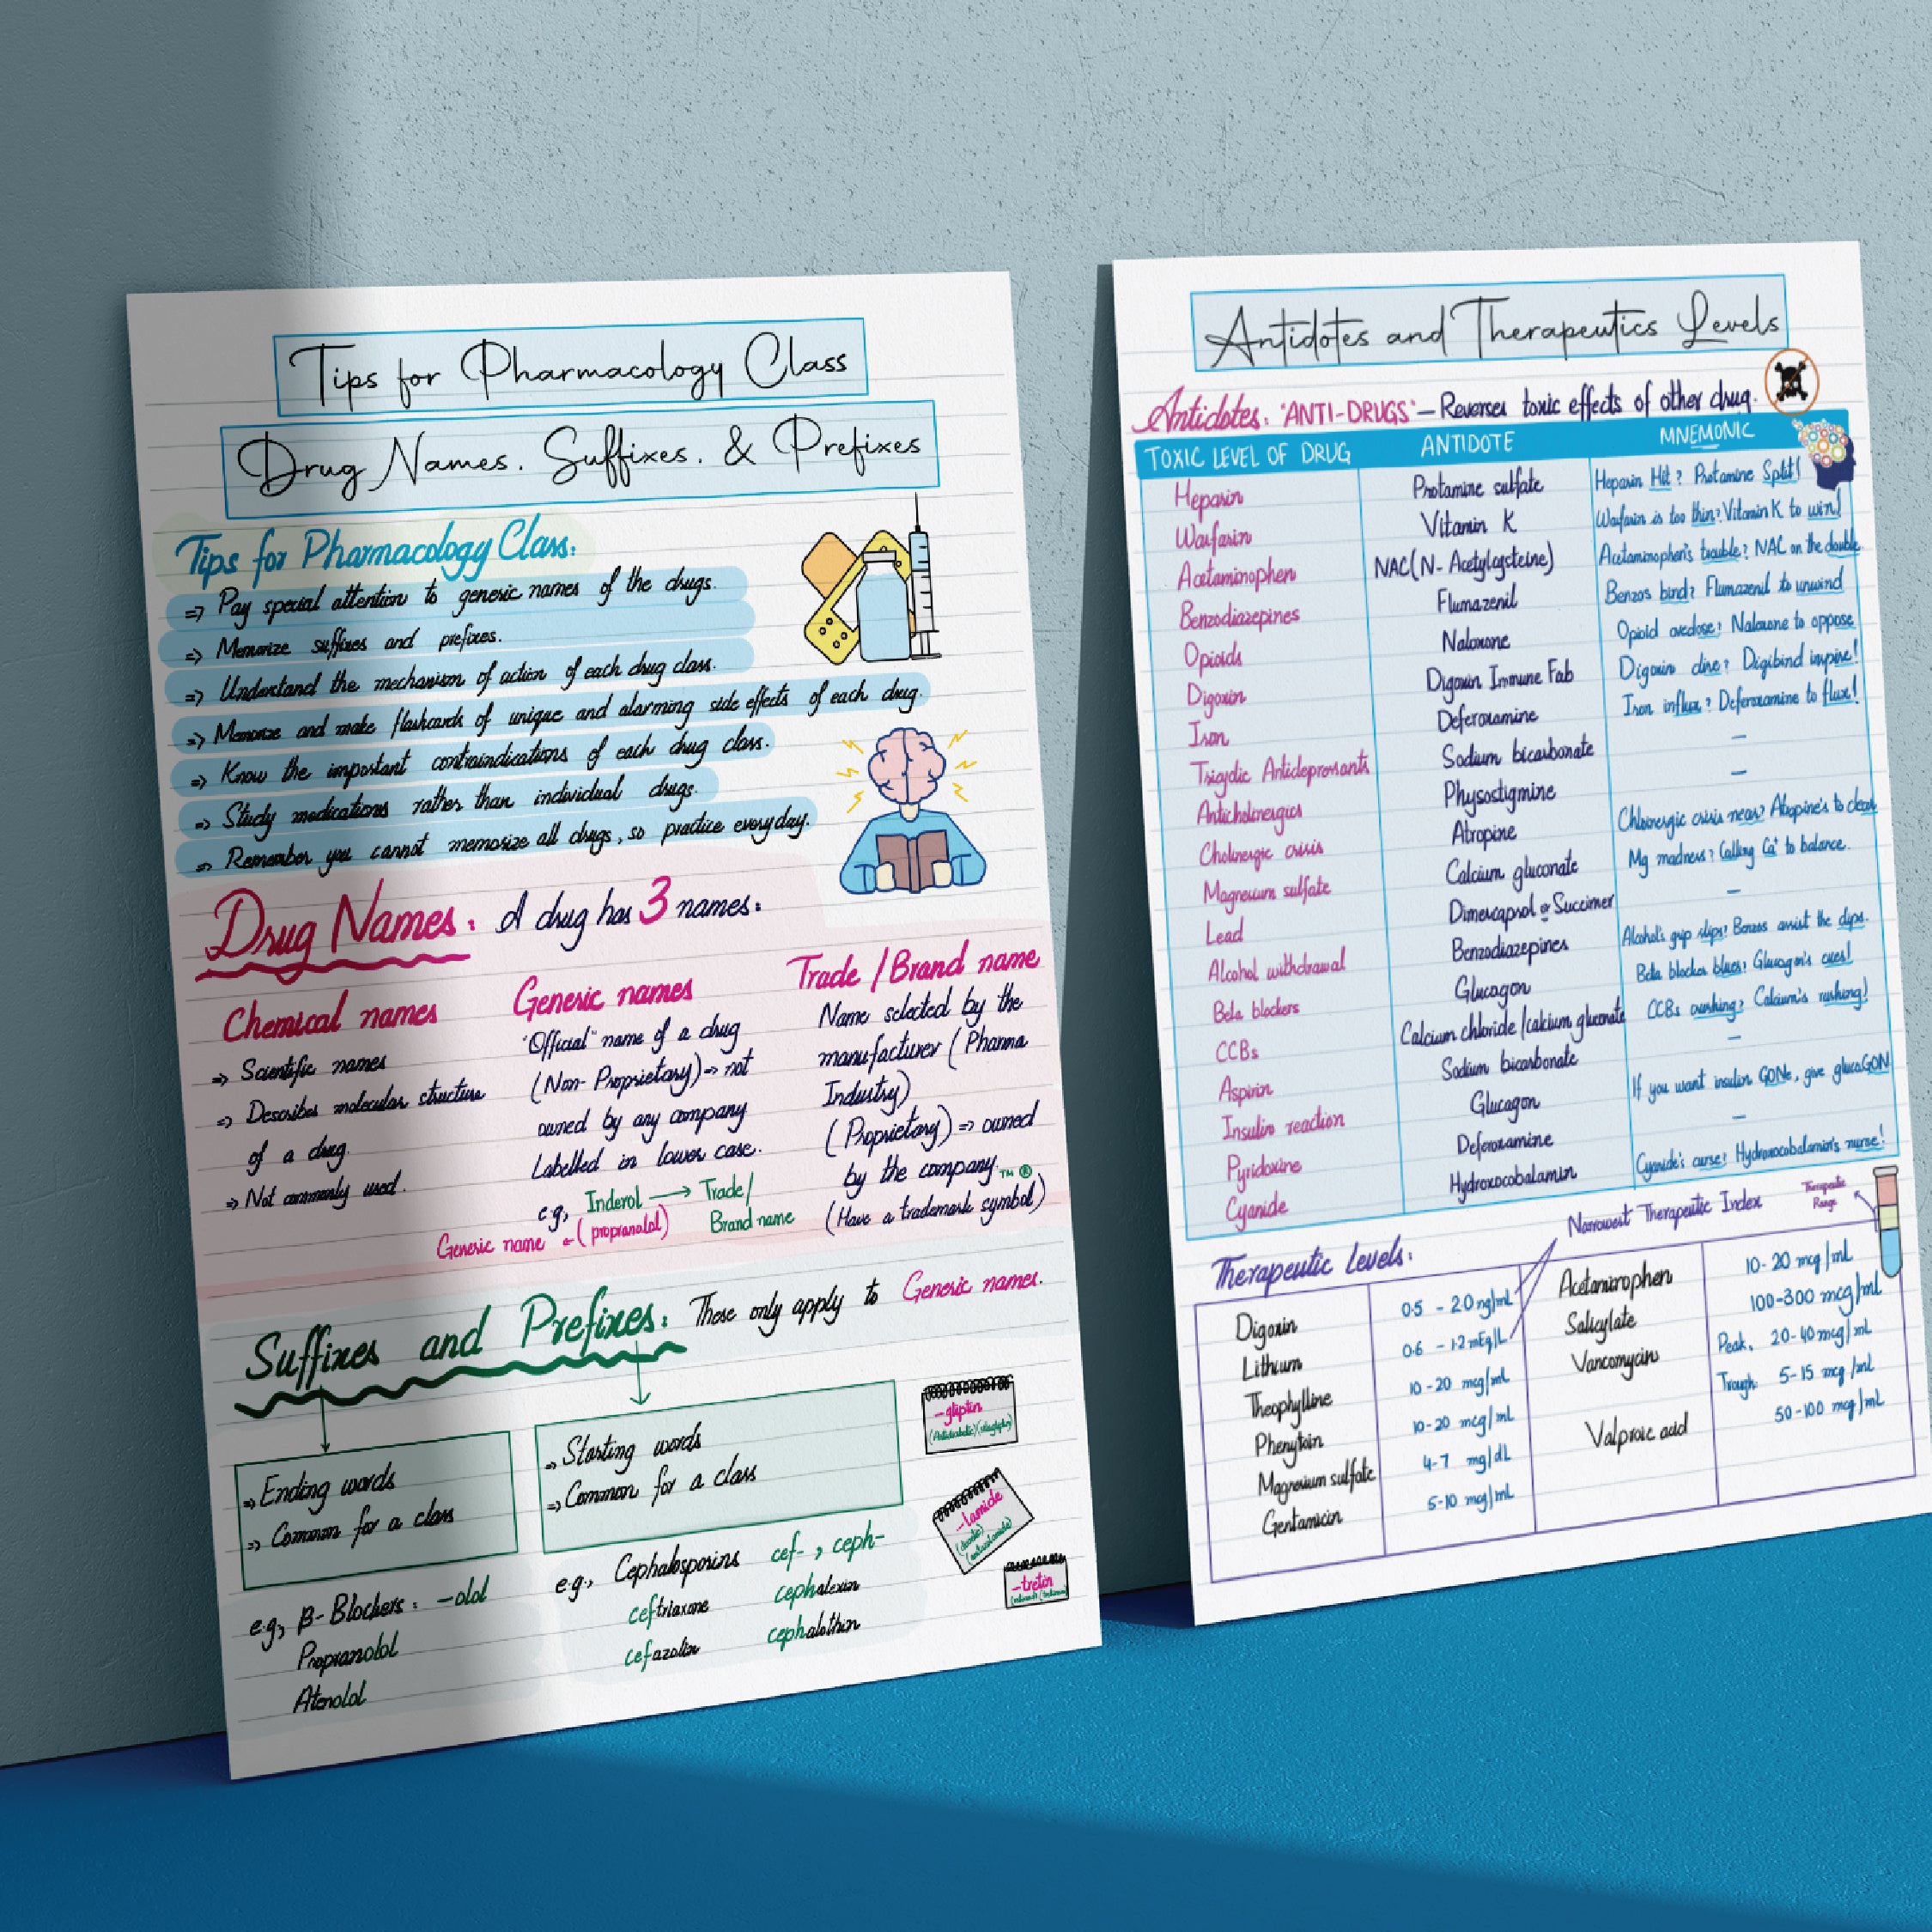 Tips for Pharmacology Class
Drug Names, Suffixes, & Prefixes
Tips for Pharmacology Class:
⇒ Pay special attention to generic names of the drugs.
⇒ Memorize suffixes and prefixes.
⇒ Understand the mechanism of action of each drug class.
⇒ Memorize and make flashcards of unique and alarming side effects of each drug.
⇒ Know the important contraindications of each drug class.
⇒ Study medications rather than individual drugs.
⇒ Remember you cannot memorize all drugs, so practice everyday.
Drug Names: A drug has 3 names:
Chemical names
⇒ Scientific names
⇒ Describes molecular structure
of a drug.
⇒ Not commonly used.
Generic names
"Official" name of a drug
(Non-Proprietary) ⇒ not
owned by any company
Labelled in lower case.
e.g, Inderol → Trade/
Brand name
Generic name ← (propranolol)
Trade / Brand name
Name selected by the
manufacturer (Pharma
Industry)
(Proprietary) ⇒ owned
by the company ™ ®
(Have a trademark symbol)
Suffixes and Prefixes: These only apply to Generic names.
⇒ Ending words
⇒ Common for a class
e.g, β-Blockers: -olol
Propranolol
Atenolol
⇒ Starting words
⇒ Common for a class
e.g, Cephalosporins cef-, ceph-
ceftriaxone cephalexin
cefazolin cephalothin
-gliptin
(Antidiabetic)
-lamide
-tretin
Antidotes and Therapeutics Levels
Antidotes: "ANTI-DRUGS" – Reverses toxic effects of other drug.
TOXIC LEVEL OF DRUG ANTIDOTE MNEMONIC
Heparin Protamine sulfate Heparin Hit? Protamine Split!
Warfarin Vitamin K Warfarin is too thin? Vitamin K to win!
Acetaminophen NAC (N-Acetylcysteine) Acetaminophen's trouble? NAC on the double
Benzodiazepines Flumazenil Benzos bind? Flumazenil to unwind
Opioids Naloxone Opioid overdose? Naloxone to oppose
Digoxin Digoxin Immune Fab Digoxin dire? Digibind inspire!
Iron Deferoxamine Iron influx? Deferoxamine to flux!
Tricyclic Antidepressants Sodium bicarbonate –
Anticholinergics Physostigmine –
Cholinergic crisis Atropine Cholinergic crisis near? Atropine's to clear
Magnesium sulfate Calcium gluconate Mg madness? Calling Ca⁺ to balance.
Lead Dimercaprol or Succimer –
Alcohol withdrawal Benzodiazepines Alcohol's grip slips? Benzos assist the dips.
Beta blockers Glucagon Beta blocker blues? Glucagon's cues!
CCBs Calcium chloride/calcium gluconate CCBs crushing? Calcium's rushing!
Aspirin Sodium bicarbonate –
Insulin reaction Glucagon If you want insulin GONe, give glucaGON
Pyridoxine Deferoxamine –
Cyanide Hydroxocobalamin Cyanide's curse? Hydroxocobalamin's nurse!
Therapeutic Levels:
Narrowest Therapeutic Index
Therapeutic
Range
Digoxin 0.5 - 2.0 ng/mL
Lithium 0.6 - 1.2 mEq/L
Theophylline 10-20 mcg/mL
Phenytoin 10-20 mcg/mL
Magnesium sulfate 4-7 mg/dL
Gentamicin 5-10 mcg/mL
Acetaminophen 10-20 mcg/mL
Salicylate 100-300 mcg/mL
Vancomycin Peak, 20-40 mcg/mL
Trough: 5-15 mcg/mL
Valproic acid 50-100 mcg/mL